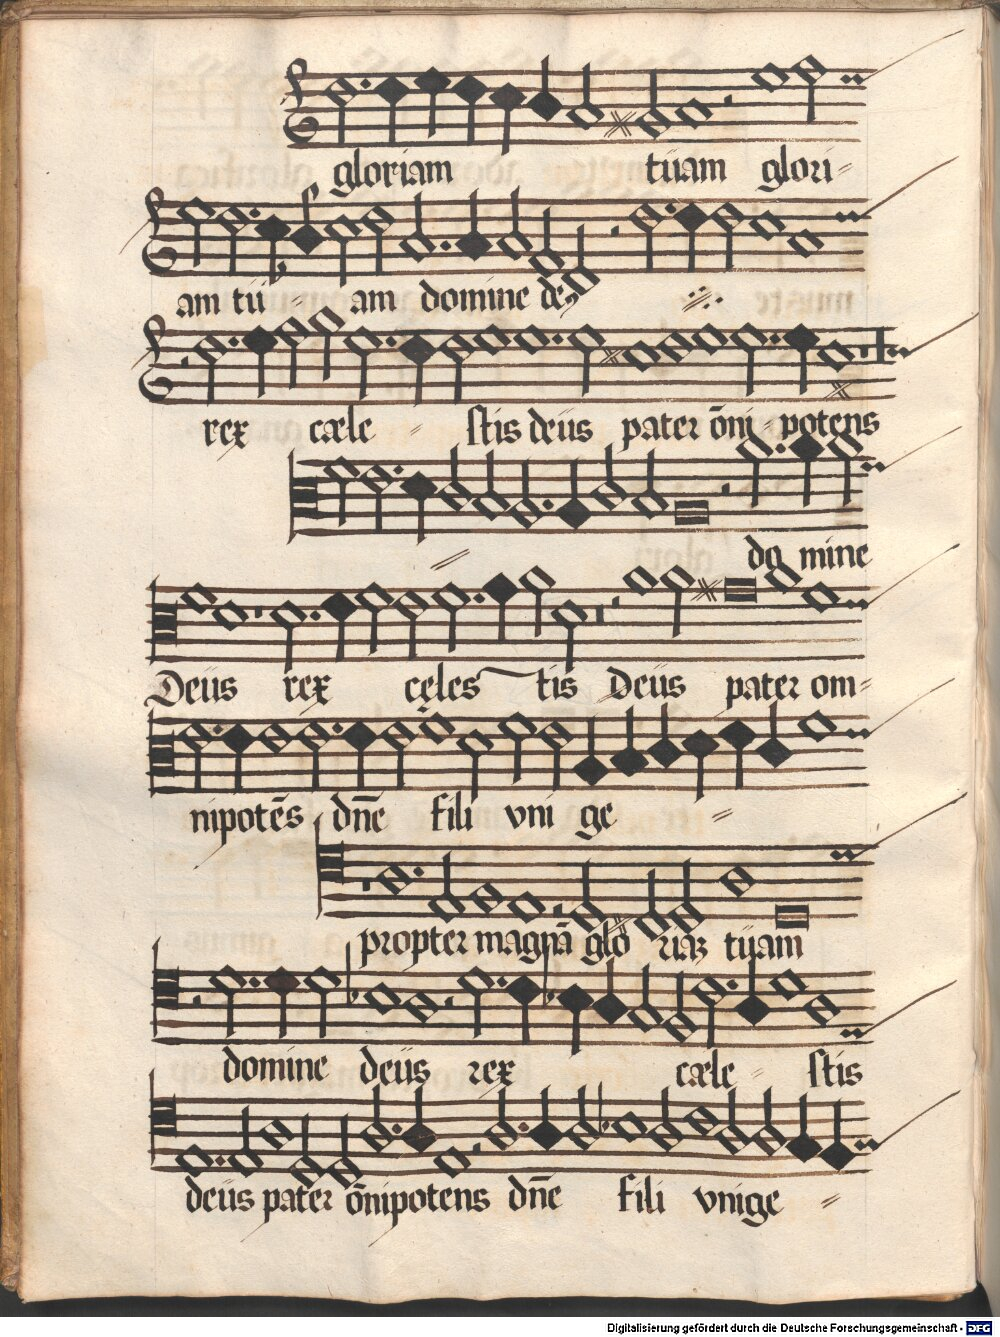 gloriam tuam glori=
am tu = am domine de9 ·//·
rex cæle = stis deus pater ōni=potens
= do mine
Deus rex cęles tis Deus pater om=
nipotēs dn̄e fili vni ge =
propter magnā glo riaʒ tuam
domine deus rex cæle = stis
deus pater ōnipotens dn̄e fili vnige =
Digitalisierung gefördert durch die Deutsche Forschungsgemeinschaft - DFG